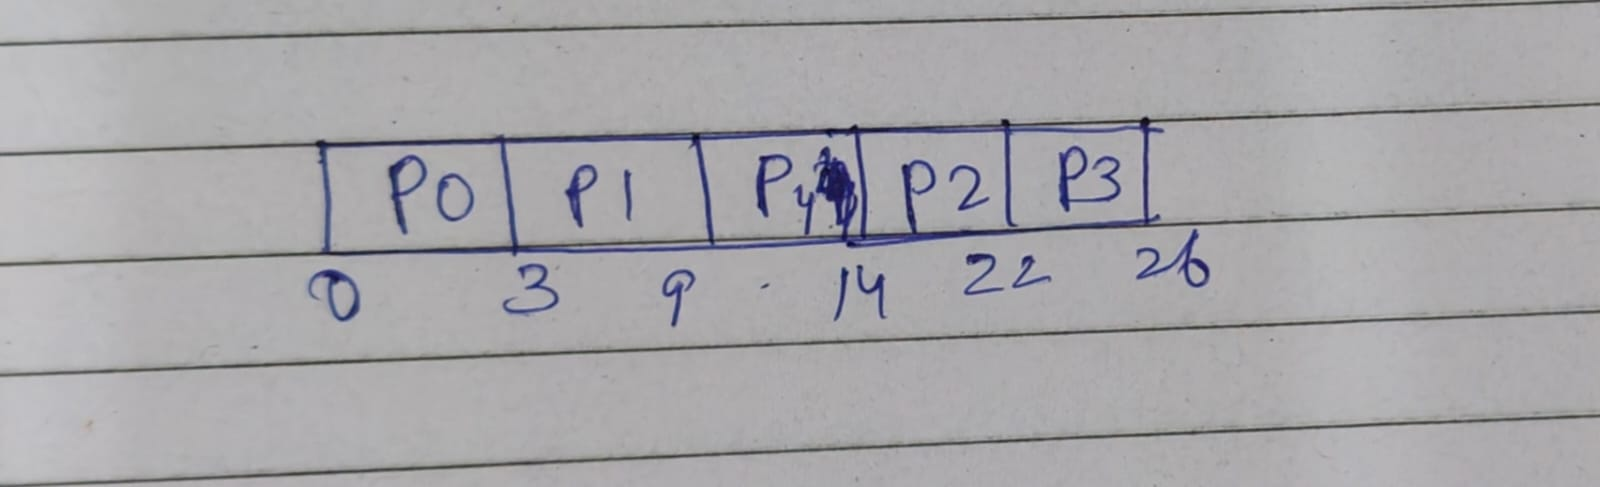 P0 P1 P4 P2 P3
0 3 9 14 22 26